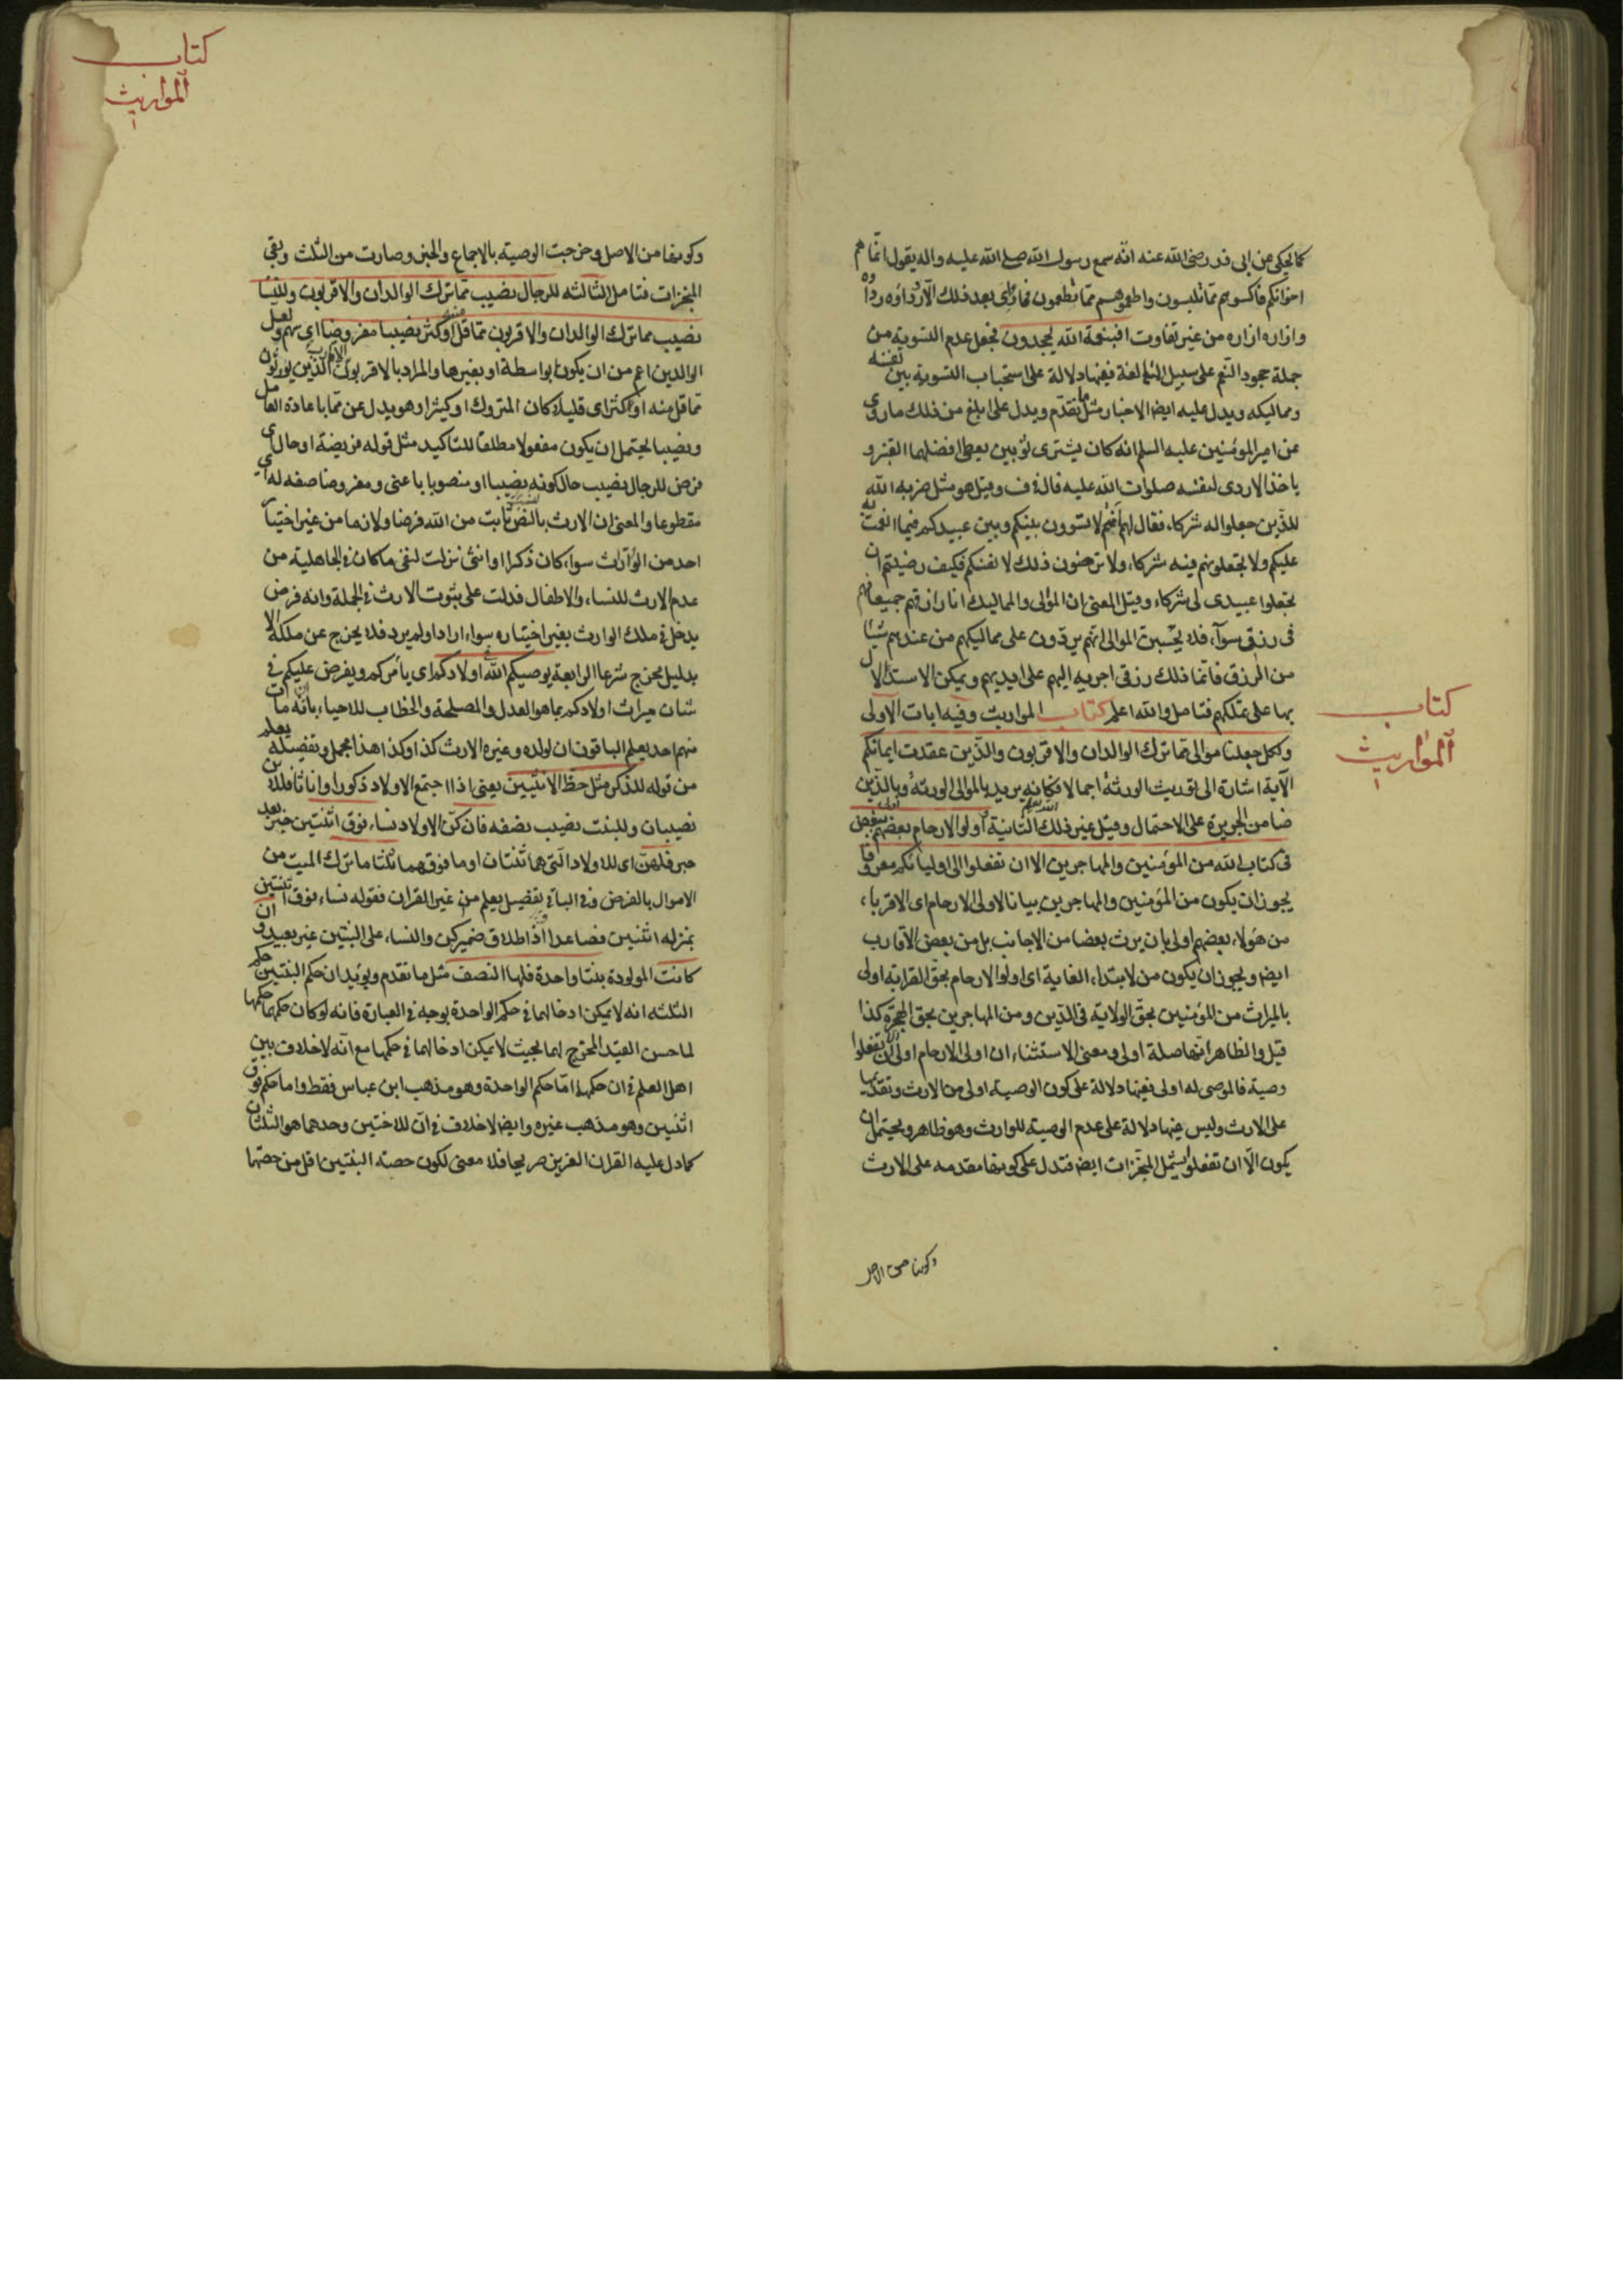 كما يحكى عن ابى ذر رضى الله عنه انّه سمع رسول الله صلى الله عليه واله يقول انّما هم
اخوانكم فاكسوهم ممّا تلبسون واطعموهم ممّا تطعمون فما رئى بعد ذلك الّا ورداؤه رداوه
وازاره ازاره من غير تفاوت افبنعمة الله يجحدون فجعل عدم التسوية من
جملة جحود النعم على سبيل المبالغة ففيها دلالة على استحباب التسوية بين نفسه
ومماليكه ويدل عليه ايضا الاخبار مثل ما تقدّم ويدل على ابلغ من ذلك ما روى
عن امير المؤمنين عليه السلم انه كان يشترى ثوبين يعطى افضلهما القنبر و
ياخذ الاردى لنفسه صلوات الله عليه قال فى ف وقيل هو مثل ضربه الله
للذّين جعلوا له شركاء فقال لهم انتم لا تسوون بينكم وبين عبيدكم فيما انعمت به
عليكم ولا تجعلونهم فيه شركاء ولا ترضون ذلك لانفسكم فكيف رضيتم ان
تجعلوا عبيدى لى شركاء وقيل المعنى ان الموالى والمماليك انا رازقهم جميعا فهم
فى رزقى سوآء فلا يحسبنّ الموالى انّهم يردّون على مماليكهم من عندهم شيئا
من الرزق فانّما ذلك رزقى اجريه اليهم على ايديهم ويمكن الاستدلال
بها على تملكهم فتامل والله اعلم كتاب المواريث وفيه ايات الاولى
ولكل جعلنا موالى ممّا ترك الوالدان والاقربون والذّين عقدت ايمانكم
الآية اشارة الى توريث الورثة اجمالا فكانه يريد بالموالى الورثة وبالذّين
ضامن الجريرة على الاحتمال وقيل غير ذلك الثانية واولوا الارحام بعضهم اولى ببعض
فى كتاب الله من المؤمنين والمهاجرين الا ان تفعلوا الى اوليائكم معروفا
يجوز ان يكون من المؤمنين والمهاجرين بيانا لاولى الارحام اى الاقرباء
من هؤلاء بعضهم اولى بان يرث بعضا من الاجانب بل من بعض الاقارب
ايضا ويجوز ان يكون من لابتداء الغاية اى اولوا الارحام بحقّ القرابة اولى
بالميراث من المؤمنين بحقّ الولاية فى الدّين ومن المهاجرين بحق الهجرة كذا
قيل والظاهر انّها صلة اولى ومعنى الاستثناء ان اولى الارحام اولى الا ان تفعلوا
وصية فالموصى له اولى ففيها دلالة على كون الوصية اولى من الارث وتقديمها
على الارث وليس فيها دلالة على عدم الوصية للوارث وهو ظاهر ويحتمل ان
يكون الّا ان تفعلوا يشمل المنجّزات ايضا فتدل على كونها مقدمه على الارث
وكونها من الاصل
كتاب
المواريث
كتاب
المواريث
وكونها من الاصل وخرجت الوصية بالاجماع والخبر وصارت من الثلث وبقى
المنجزات فتامل الثالثه للرجال نصيب ممّا ترك الوالدان والاقربون وللنّسا
نصيب مما ترك الوالدان والاقربون ممّا قلّ منه او كثر نصيبا مفروضا اى سهم ولعل
الوالدين اعم من ان يكون بواسطة او بغيرها والمراد بالاقربون الاقارب الذين يورثون
ممّا قل منه او كثر اى قليلا كان المتروك او كثيرا وهو بدل عن ممّا باعادة العامل
ونصيبا يحتمل ان يكون مفعولا مطلقا للتاكيد مثل قوله فريضة او حال اى
فرض للرجال نصيب حال كونه نصيبا او منصوبا باعنى ومفروضا صفه له اى
مقطوعا والمعنى ان الارث بالنّصّ ثابت من الله فرضا ولازما من غير اختيار
احد من الورّاث سواء كان ذكرا او انثى نزلت لنفى ما كان فى الجاهلية من
عدم الارث للنساء والاطفال فدلت على ثبوت الارث فى الجملة وانه فرض
يدخل فى ملك الوارث بغير اختياره سواء اراد او لم يرد فلا يخرج عن ملكه الا
بدليل مخرج شرعا الرابعة يوصيكم الله فى اولادكم اى يامركم ويفرض عليكم فى
شان ميراث اولادكم بما هو العدل والمصلحة والخطاب للاحياء بانّه اذا مات
منهم احد يعلم الباقون ان لولده وغيره الارث كذا وكذا هذا مجمل وتفصيله يعلم
من قوله للذكر مثل حظّ الانثيين يعنى اذا اجتمع الاولاد ذكورا واناثا فللابن
نصيبان وللبنت نصيب نصفه فان كنّ الاولاد نساء فوق اثنتين خبر بعد
خبر فلهنّ اى للاولاد الّتى هما ثنتان او ما فوقهما ثلثا ما ترك الميت من
الاموال بالفرض وفى الباقى تفصيل يعلم من غير القران فقوله نساء فوق اثنتين
بمنزله اثنتين فصاعدا اذ اطلاق ضمير كن والنساء على البنتين غير بعيد وان
كانت المولودة بنتا واحدة فلها النصف مثل ما تقدم ويؤيد ان حكم البنتين حكم
الثلثه انه لا يمكن ادخالهما فى حكم الواحدة بوجه فى العبارة فانه لو كان حكمهما حكمها
لما حسن القيد المخرج لهما بحيث لا يمكن ادخالهما فى حكمها مع انّه لا خلاف بين
اهل العلم فى ان حكمهما امّا حكم الواحدة وهو مذهب ابن عباس فقط واما حكم فوق
اثنين وهو مذهب غيره وايضا لا خلاف فى انّ للاختين وحدهما هو الثلثان
كما دل عليه القران العزيز صريحا فلا معنى لكون حصة البنتين اقل من حصّتها